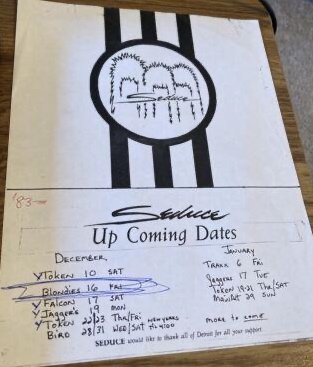 Seduce
'83
Seduce
Up Coming Dates
December
Token 10 SAT
Blondies 16 Fri
Falcon 17 SAT
Jagger's 19 MON
Token 22/23 Thr/Fri
Bird 28/31 Wed/SAT NEW YEARS
January
Traxx 6 Fri
Jaggers 17 TUE
Token 19-21 Thr/Sat
29 SUN
more to come
SEDUCE would like to thank all of Detroit for all your support.